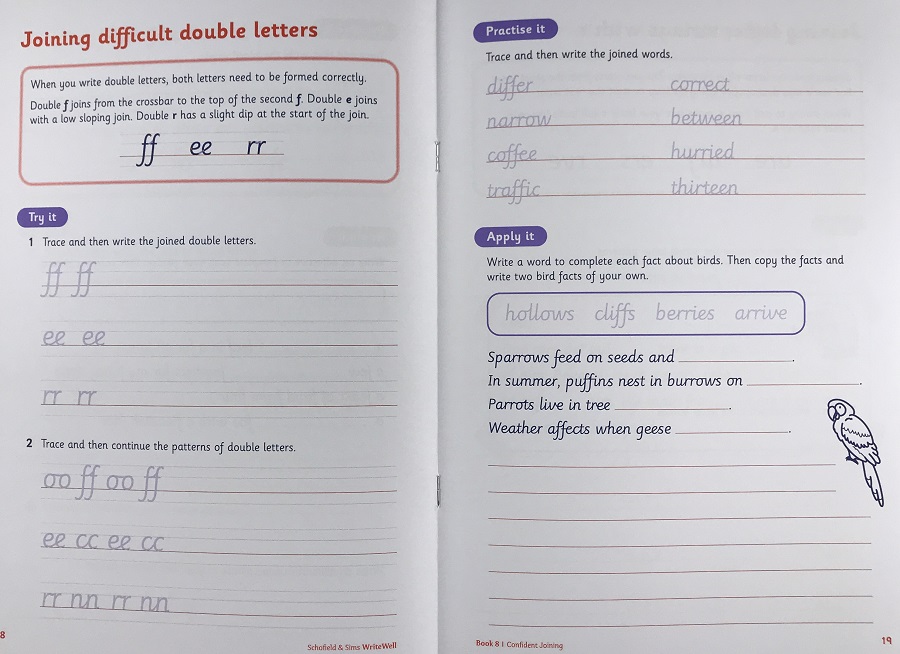 Joining difficult double letters
When you write double letters, both letters need to be formed correctly.
Double f joins from the crossbar to the top of the second f. Double e joins
with a low sloping join. Double r has a slight dip at the start of the join.
ff ee rr
Try it
1 Trace and then write the joined double letters.
ff ff
ee ee
rr rr
2 Trace and then continue the patterns of double letters.
oo ff oo ff
ee cc ee cc
rr nn rr nn
8
Schofield & Sims WriteWell
Practise it
Trace and then write the joined words.
differ correct
narrow between
coffee hurried
traffic thirteen
Apply it
Write a word to complete each fact about birds. Then copy the facts and
write two bird facts of your own.
hollows cliffs berries arrive
Sparrows feed on seeds and .
In summer, puffins nest in burrows on .
Parrots live in tree .
Weather affects when geese .
Book 8 | Confident Joining
19